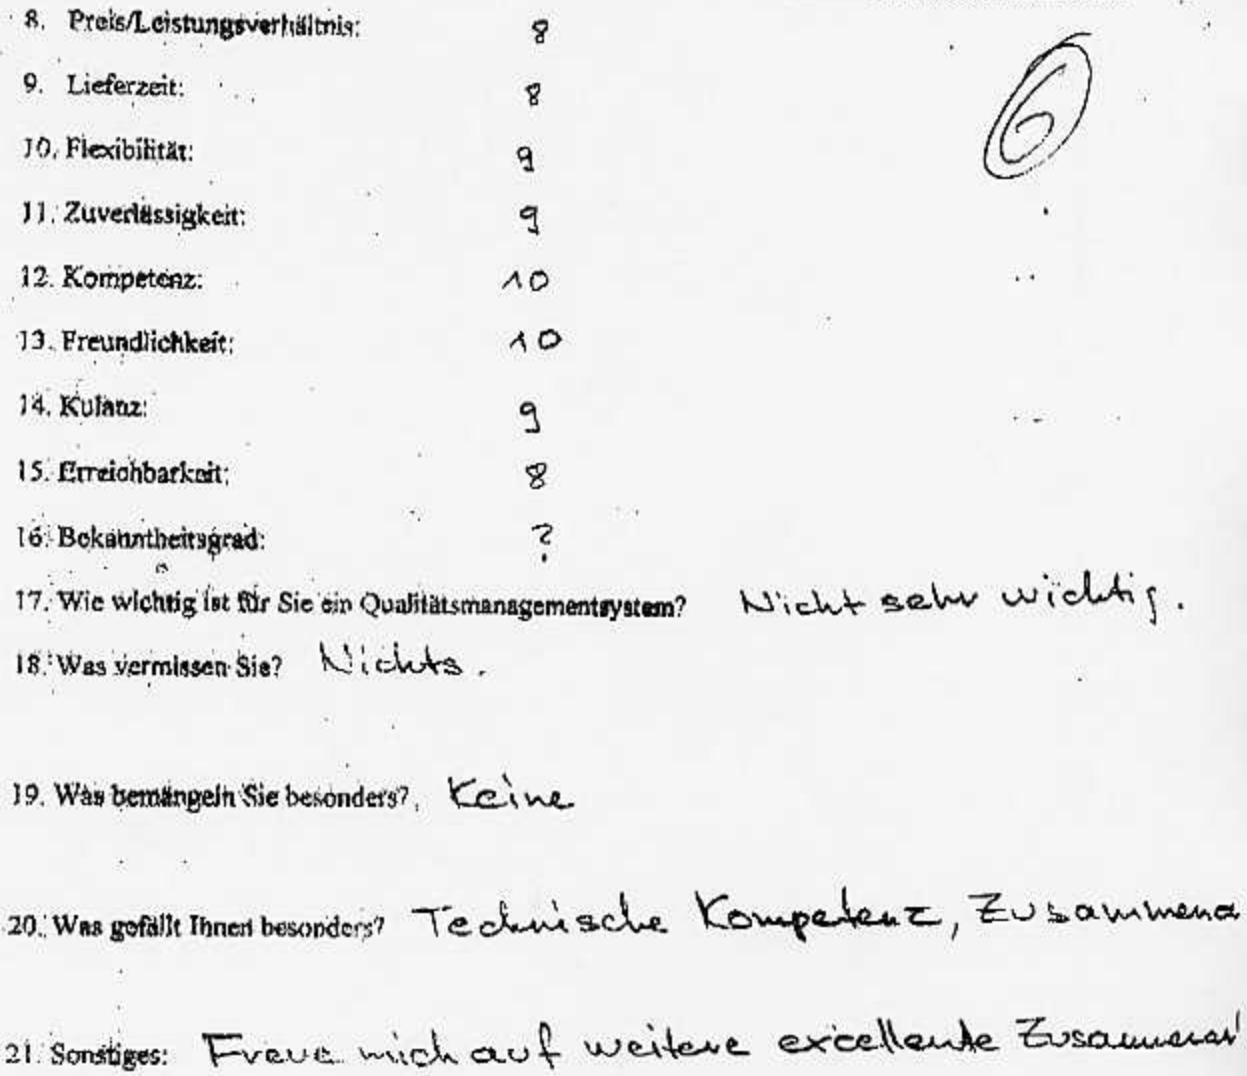 8. Preis/Leistungsverhältnis: 8
6
9. Lieferzeit: 8
10. Flexibilität: 9
11. Zuverlässigkeit: 9
12. Kompetenz: 10
13. Freundlichkeit: 10
14. Kulanz: 9
15. Erreichbarkeit: 8
16. Bekanntheitsgrad: ?
17. Wie wichtig ist für Sie ein Qualitätsmanagementsystem? Nicht sehr wichtig.
18. Was vermissen Sie? Nichts.
19. Was bemängeln Sie besonders? Keine
20. Was gefällt Ihnen besonders? Technische Kompetenz, Zusammena
21. Sonstiges: Freue mich auf weitere excellente